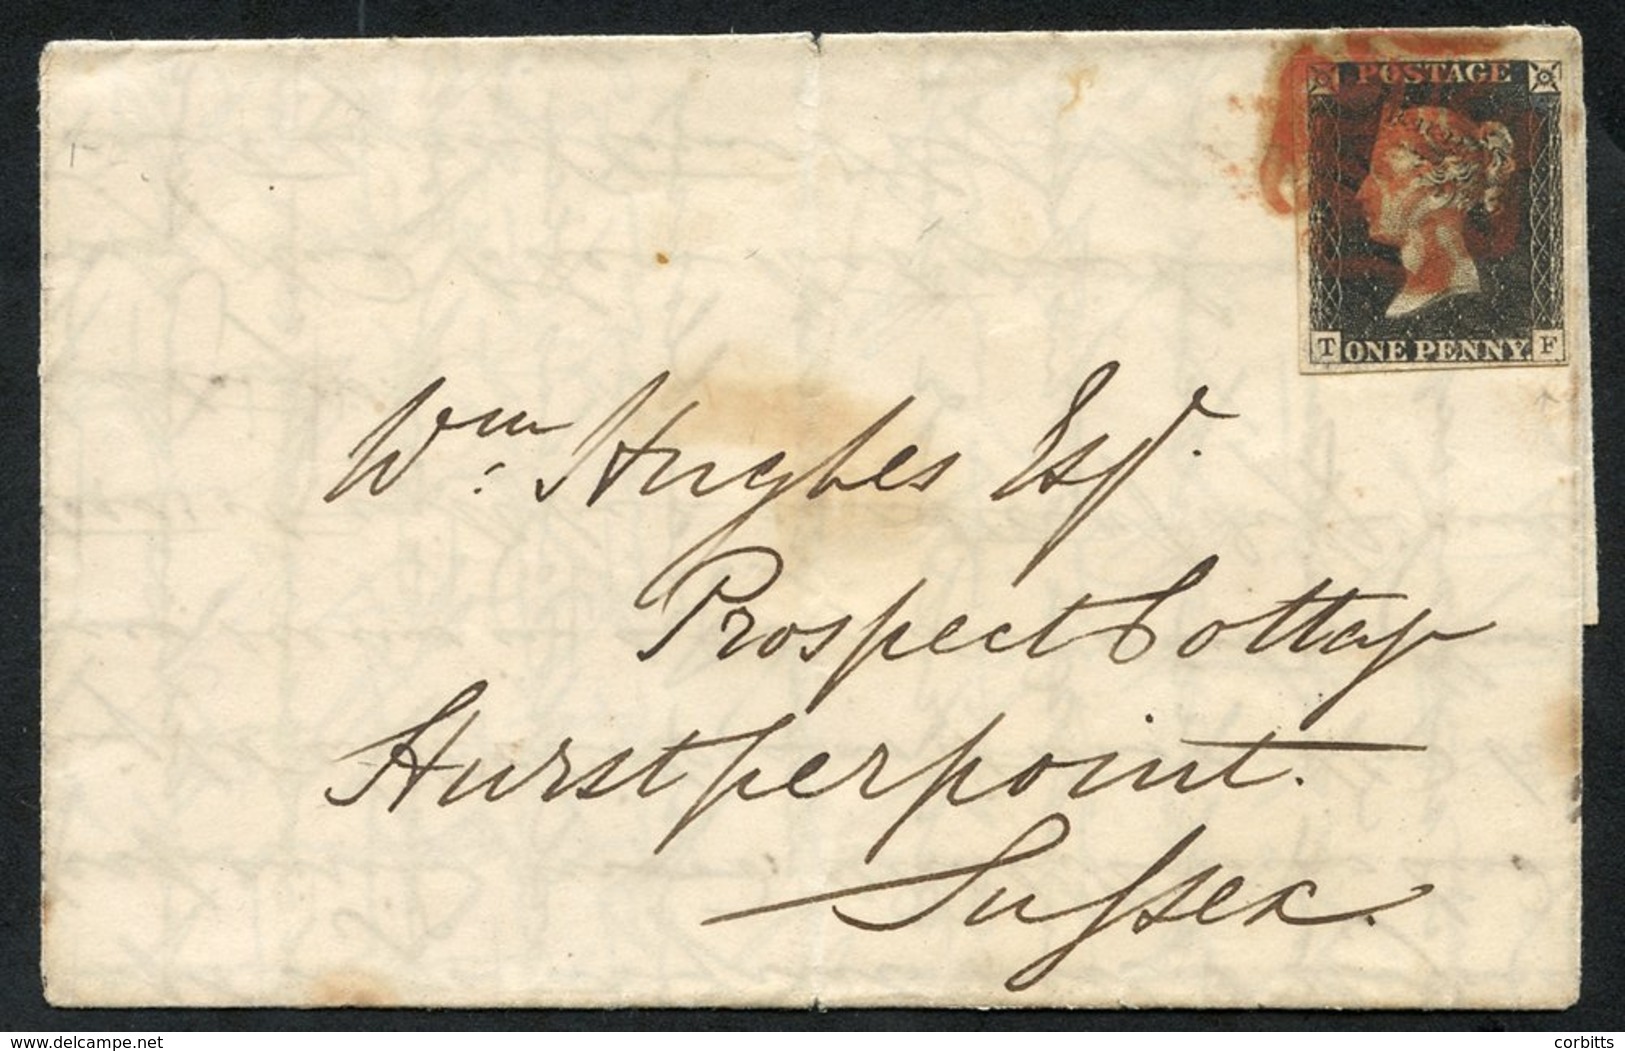 POSTAGE
T ONE PENNY. F
Wm: Hughes Esqr.
Prospect Cottage
Hurstperpoint.
Sussex.
www.delcampe.net
corbitts